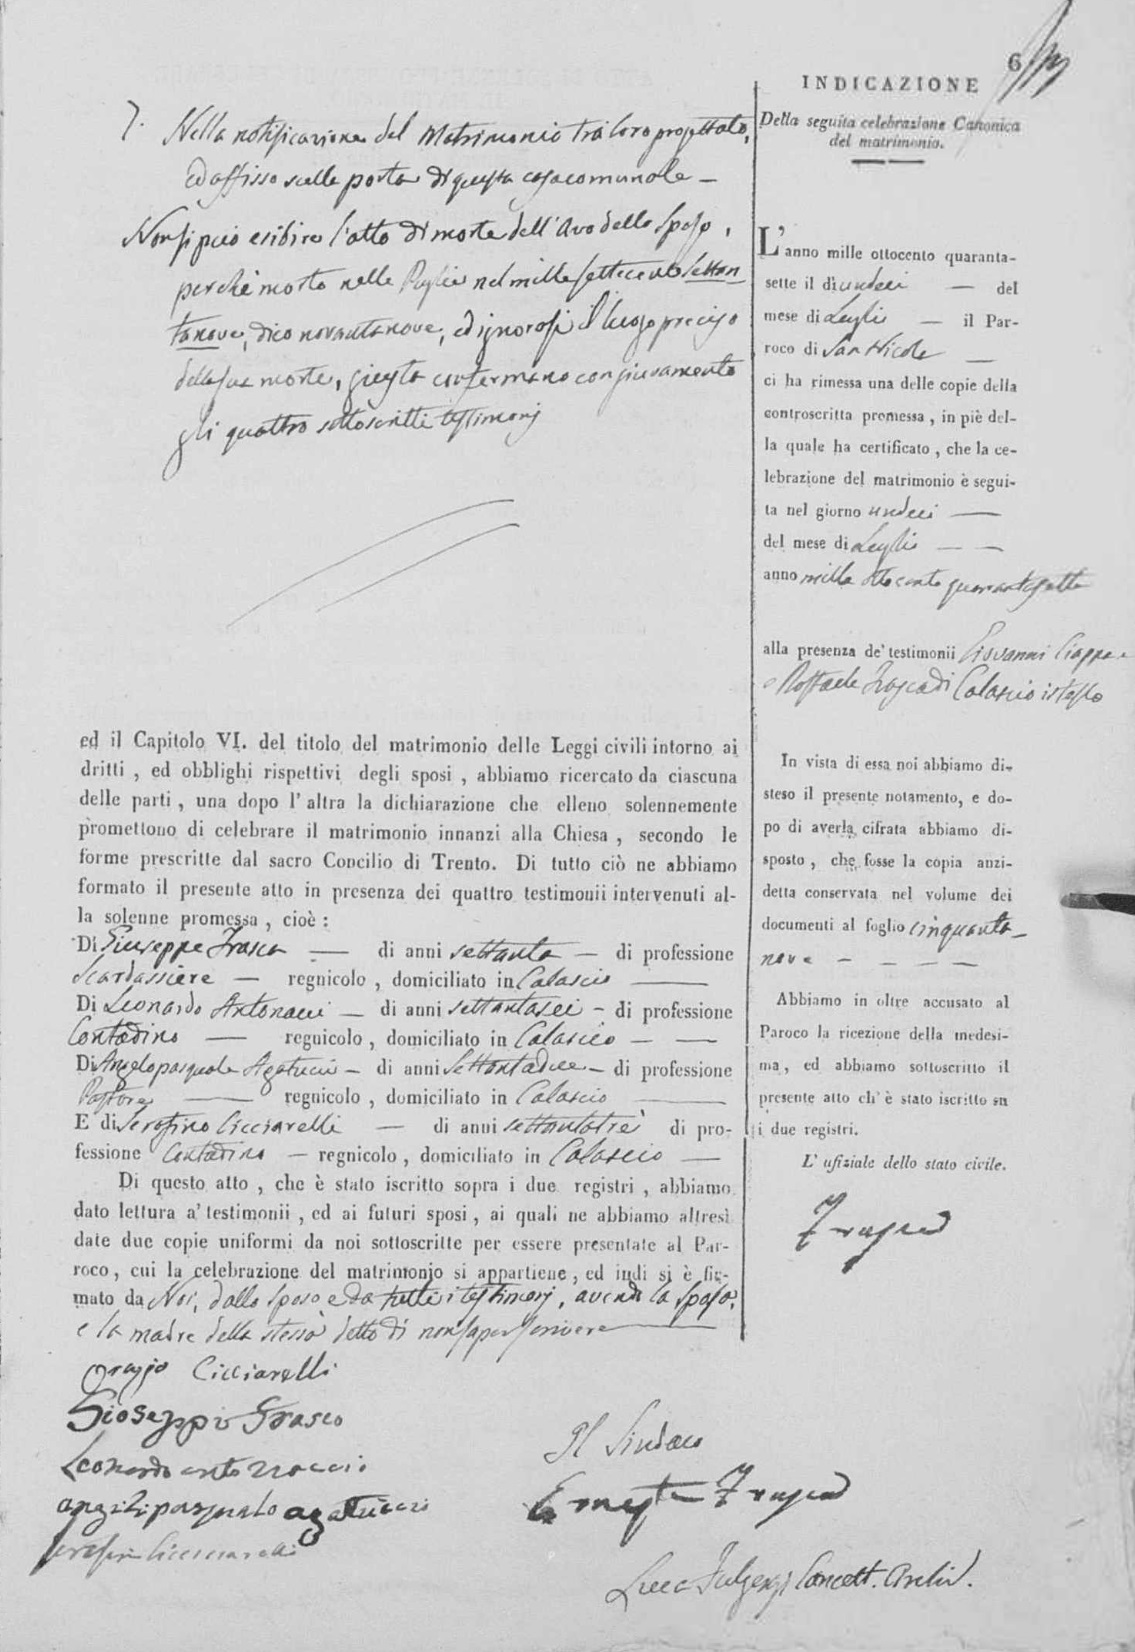 6
7. Nella notificazione del Matrimonio tra loro progettato,
ed affisso sulla porta di questa casa comunale —
Non si può esibire l'atto di morte dell'Avo dello Sposo,
perchè morto nelle Puglie nel mille settecento settan
tanove, dico novantanove, ed ignorasi il luogo preciso
della sua morte, giusta confermano con giuramento
gli quattro sottoscritti testimonj
ed il Capitolo VI. del titolo del matrimonio delle Leggi civili intorno ai
dritti , ed obblighi rispettivi degli sposi , abbiamo ricercato da ciascuna
delle parti , una dopo l' altra la dichiarazione che elleno solennemente
promettono di celebrare il matrimonio innanzi alla Chiesa , secondo le
forme prescritte dal sacro Concilio di Trento. Di tutto ciò ne abbiamo
formato il presente atto in presenza dei quattro testimonii intervenuti al-
la solenne promessa , cioè :
Di Giuseppe Frasca — di anni settanta — di professione
Scardassiere — regnicolo , domiciliato in Calascio —
Di Leonardo Antonacci — di anni settantasei - di professione
Contadino — regnicolo , domiciliato in Calascio — —
Di Angelopasquale Agatucci — di anni Settantadue — di professione
Pastore — regnicolo , domiciliato in Calascio —
E di Serafino Cicciarelli — di anni settantatrè di pro-
fessione Contadino — regnicolo , domiciliato in Calascio —
Di questo atto , che è stato iscritto sopra i due registri , abbiamo
dato lettura a' testimonii , ed ai futuri sposi , ai quali ne abbiamo altresì
date due copie uniformi da noi sottoscritte per essere presentate al Par-
roco , cui la celebrazione del matrimonio si appartiene , ed indi si è fir-
mato da Noi, dallo sposo e da tutti i testimonj, avendo la sposa,
e la madre dello stesso detto di non saper scrivere —
Orazio Cicciarelli
Gioseppi Frasca
Leonardo Antonaccio
angilipasqualo agatuccio
serafin Cicciarelli
Il Sindaco
Frasca
Luca Cancell. Archiv.
INDICAZIONE
Della seguita celebrazione Canonica
del matrimonio.
L'anno mille ottocento quaranta-
sette il dì undeci — del
mese di Luglio — il Par-
roco di San Nicola —
ci ha rimessa una delle copie della
controscritta promessa , in piè del-
la quale ha certificato , che la ce-
lebrazione del matrimonio è segui-
ta nel giorno undeci —
del mese di Luglio — —
anno mille ottocento quarantasette
alla presenza de' testimonii Giovanni
e Raffaele Frasca di Calascio istesso
In vista di essa noi abbiamo di-
steso il presente notamento, e do-
po di averla cifrata abbiamo di-
sposto , che fosse la copia anzi-
detta conservata nel volume dei
documenti al foglio cinquanta-
nove — — — —
Abbiamo in oltre accusato al
Paroco la ricezione della medesi-
ma , ed abbiamo sottoscritto il
presente atto ch' è stato iscritto su
i due registri.
L' ufiziale dello stato civile.
Frasca